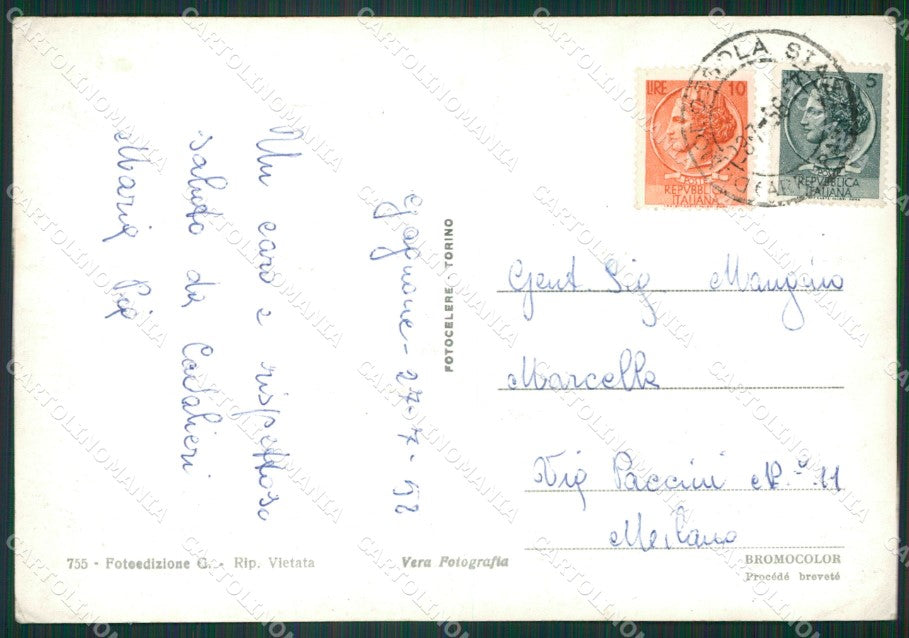 Un caro e rispettoso
saluto da Cavalieri
Maria Pia
27-7-58
FOTOCELERE TORINO
LIRE 10
POSTE
REPVBBLICA
ITALIANA
5
REPVBLICA
ITALIANA
ISOLA
Gent. Sig Mangino
Marcello
Via Paccini N.º 11
Milano
755 - Fotoedizione G. - Rip. Vietata
Vera Fotografia
BROMOCOLOR
Procédé breveté
CARTOLINOMANIA